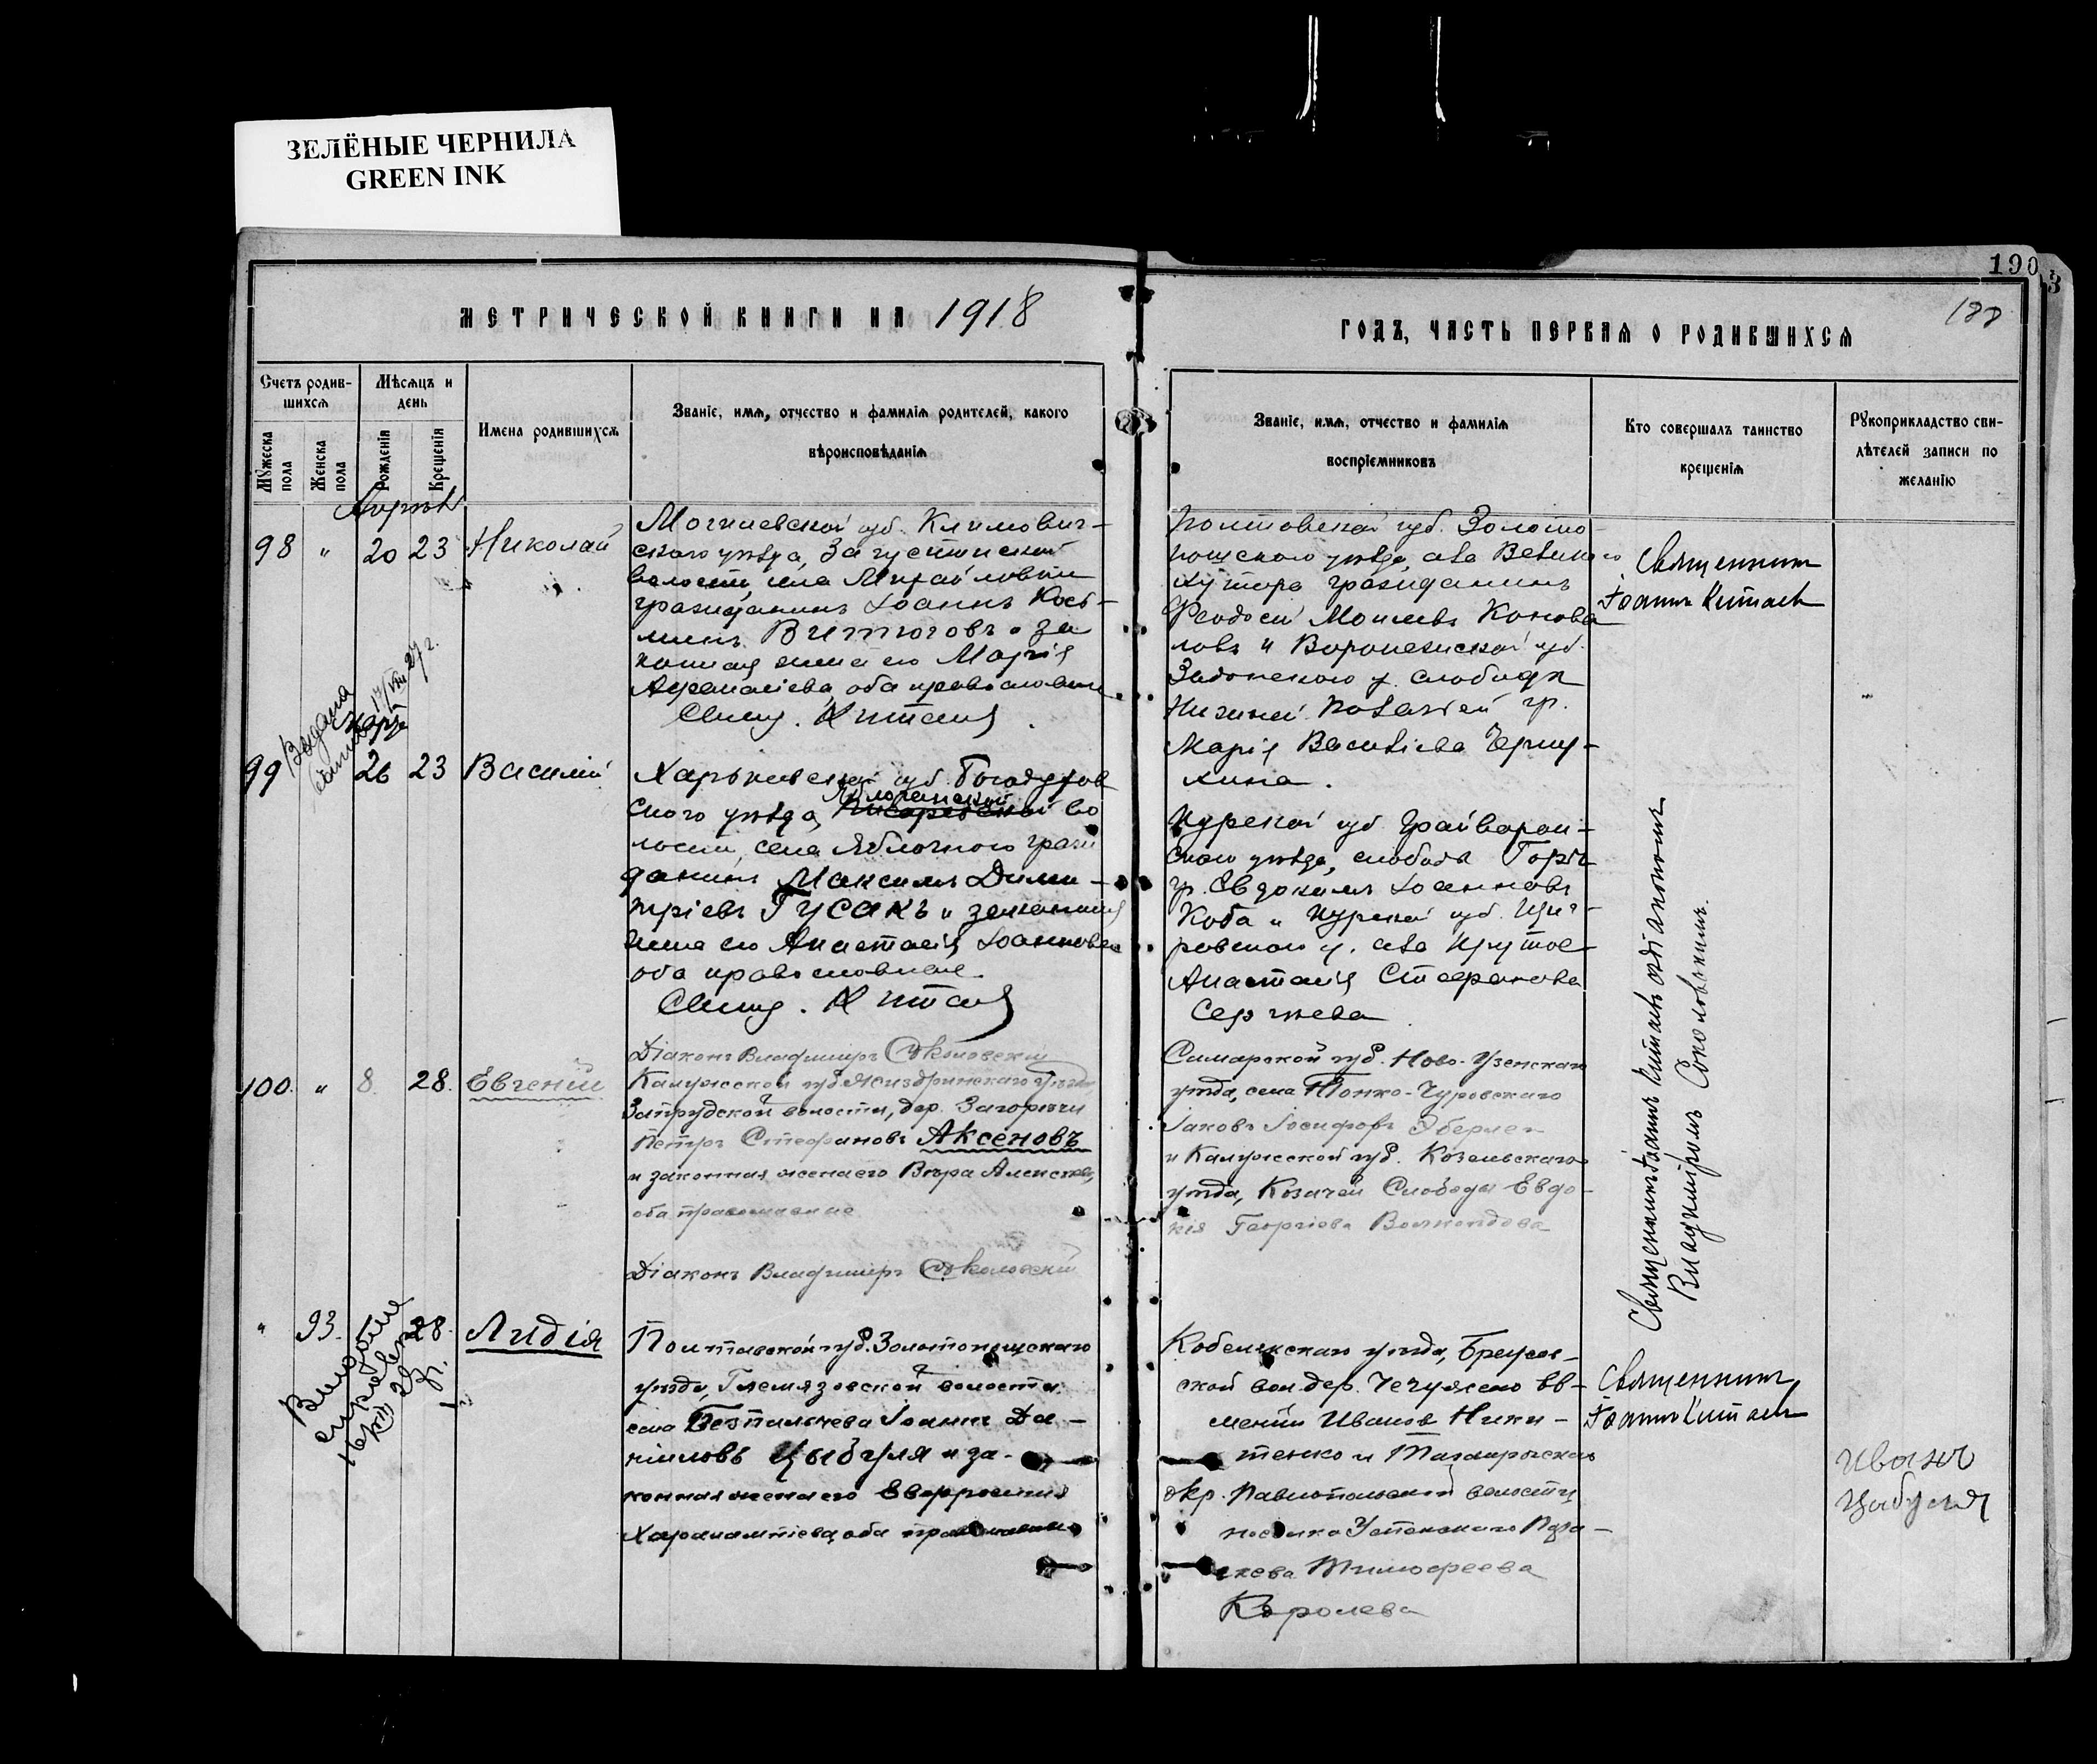 ЗЕЛЁНЫЕ ЧЕРНИЛА
GREEN INK
190
3
188
МЕТРИЧЕСКОЙ КНИГИ НА 1918
ГОДЪ, ЧАСТЬ ПЕРВАЯ О РОДИВШИХСЯ
Счетъ родив-
шихся
Мѣсяцъ и
день
Мужеска
пола
Женска
пола
Рожденія
Крещенія
Имена родившихся
Званіе, имя, отчество и фамилія родителей, какого
вѣроисповѣданія
Званіе, имя, отчество и фамилія
воспріемниковъ
Кто совершалъ таинство
крещенія
Рукоприкладство сви-
дѣтелей записи по
желанію
98 " 20 23 Николай
Могилевской губ. Климович-
скаго уѣзда,
волости, села Михайловки
гражданинъ Іоаннъ Кось-
минъ Витюговъ и за
конная жена его Марія
Аѳанасіева, оба православные
Свящ. Китаевъ
Полтавской губ. Золото-
ношскаго уѣзда, села Великаго
Хутора гражданинъ
Ѳеодосій Моисеевъ Конова
ловъ и Воронежской губ.
Задонскаго у. слободы
Нижней гр.
Марія Васильева
Священникъ
Іоаннъ Китаевъ
Выдана
17/VIII 27 г.
99 26 23 Василій
Харьковской губ. Богодухов
скаго уѣзда, во
лости, села Яблочного граж
данинъ Максимъ Дими-
тріевъ Гусакъ и законная
жена его Анастасія Іоаннова
оба православные.
Свящ. Китаевъ
Курской губ. Грайворон-
скаго уѣзда, слободы
гр. Евдокимъ Іоанновъ
Коба и Курской губ. Щиг-
ровскаго у. села Крутое
Анастасія Стефанова
Сергѣева
Священникъ Іоаннъ Китаевъ съ діакономъ
Владиміромъ Соколовскимъ.
Діаконъ Владиміръ Соколовскій
100. " 8. 28. Евгеній
Калужской губ. Жиздринскаго уѣзда,
Запрудской волости, дер. Загоричи
Петръ Стефановъ Аксеновъ
и законная жена его Вѣра Алексѣева,
оба православные
Діаконъ Владиміръ Соколовскій
Самарской губ. Ново-Узенскаго
уѣзда, села Тонко-Чуровскаго
Іаковъ Іосифовъ
и Калужской губ. Козельскаго
уѣзда, Козичей Слободы Евдо-
кія Георгіева
" 93. 28. Лидія
Полтавской губ. Золотоношскаго
уѣзда, Глемязовской волости
села Безпальчева Іоаннъ Да-
ніиловъ Цыбуля и за-
конная жена его Евфросинія
Харалампіева, оба православные
Кобелякскаго уѣзда,
ской вол. дер.
Иванов Ники-
тенко и
окр. Павлопольской волости
поселка Успенскаго
Тимофеева
Королева
Священникъ
Іоаннъ Китаевъ
Иванъ
Цыбуля